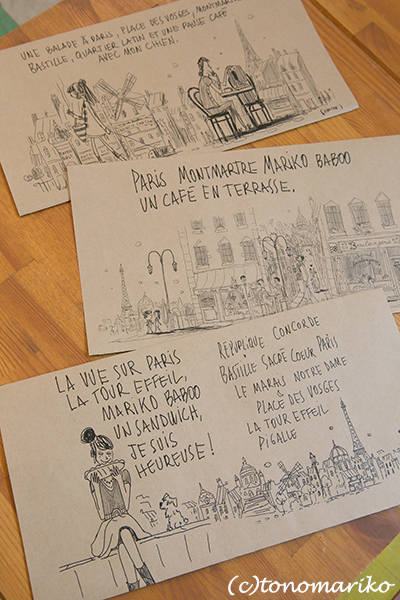 UNE BALADE À PARIS, PLACE DES VOSGES, MONTMARTRE
BASTILLE, QUARTIER LATIN ET UNE PAUSE CAFÉ
AVEC MON CHIEN.
PARIS MONTMARTRE MARIKO BABOO
UN CAFÉ EN TERRASSE.
LA VUE SUR PARIS
LA TOUR EFFEIL,
MARIKO BABOO
UN SANDWICH,
JE SUIS
HEUREUSE!
RÉPUBLIQUE CONCORDE
BASTILLE SACRÉ COEUR PARIS
LE MARAIS NOTRE DAME
PLACE DES VOSGES
LA TOUR EFFEIL
PIGALLE
(c)tonomariko